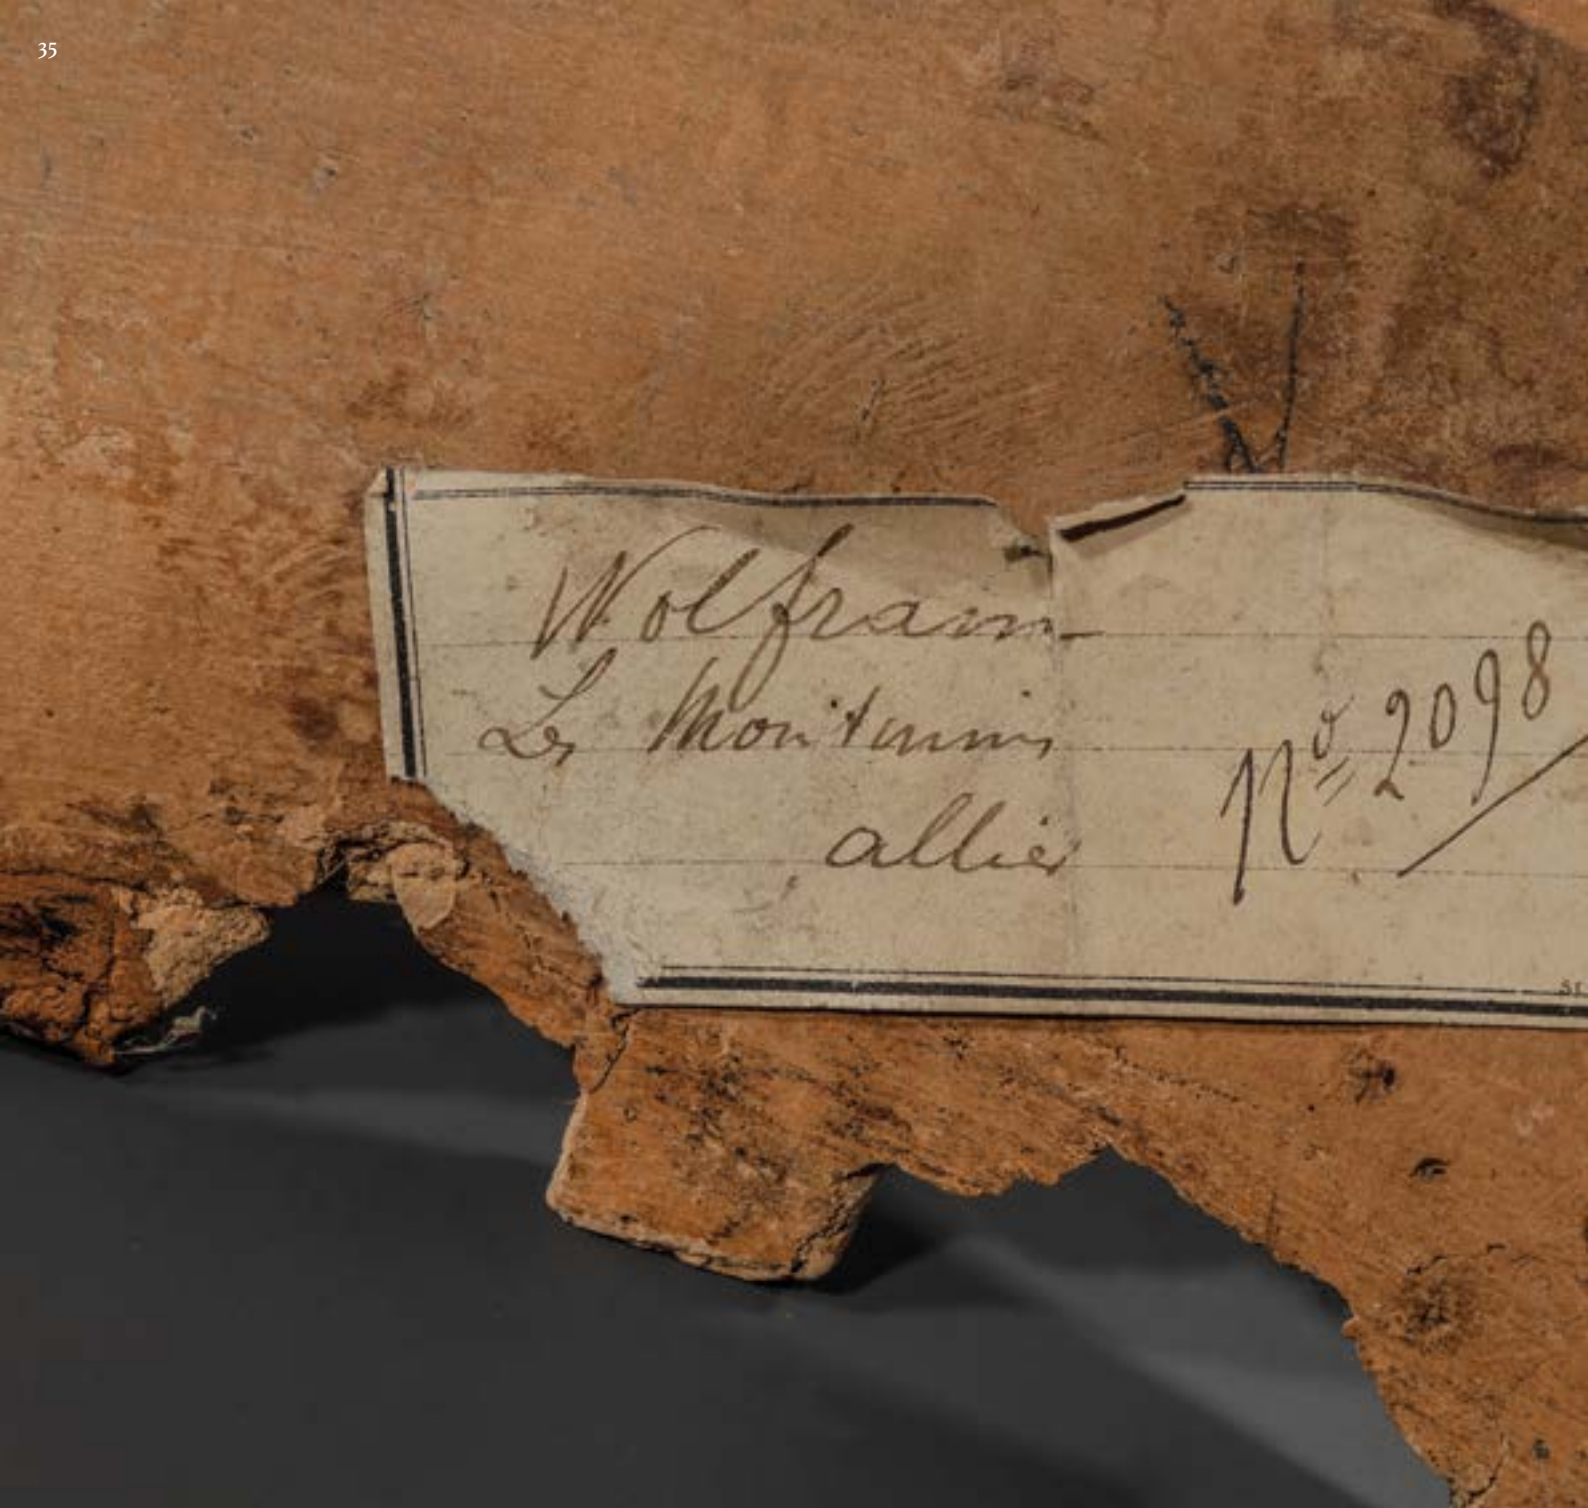 35
Wolfram
Les Montmins
allier
Nº 2098